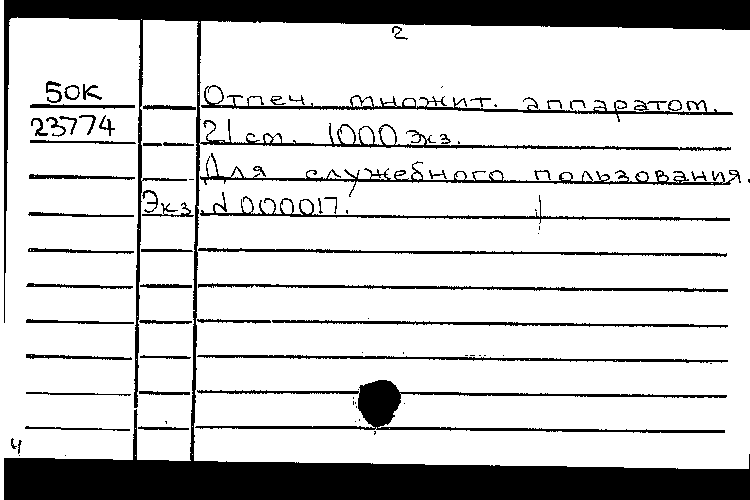 2
50К Отпеч. множит. аппаратом.
23774 21 см. 1000 экз.
Для служебного пользования.
Экз. № 000017.
4